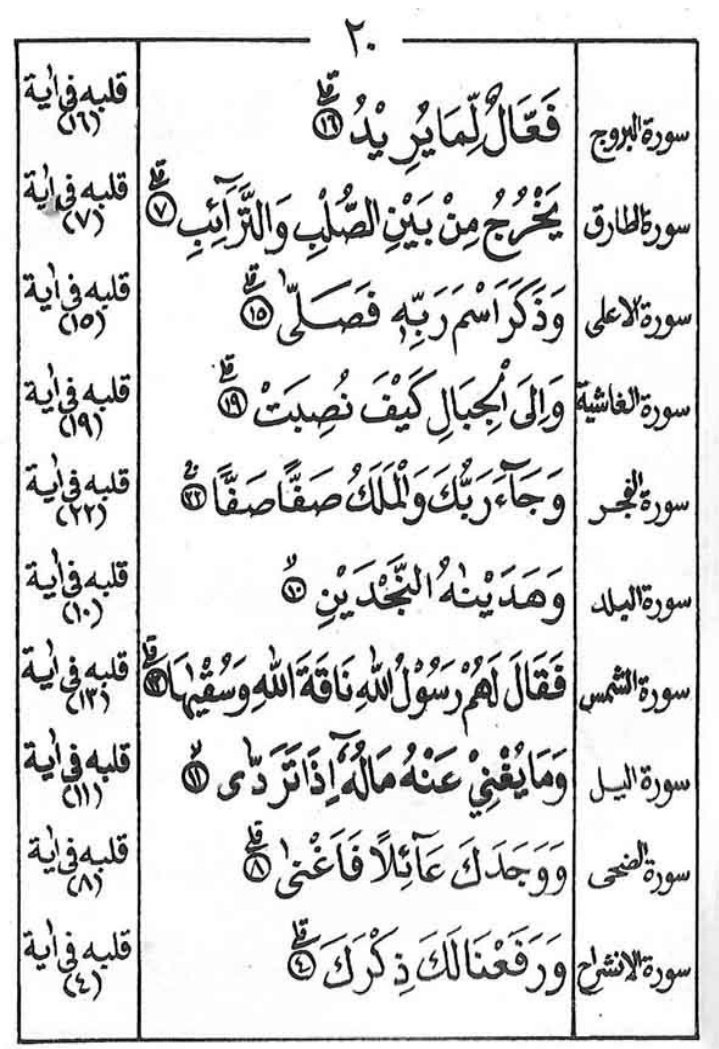 ٢٠
سورة البروج فَعَّالٌ لِّمَا يُرِيْدُ ؕ﴿١٦﴾ قلبه فى اٰية (١٦)
سورة الطارق يَخْرُجُ مِنْۢ بَيْنِ الصُّلْبِ وَالتَّرَآئِبِ ؕ﴿٧﴾ قلبه فى اٰية (٧)
سورة الاعلى وَذَكَرَ اسْمَ رَبِّهٖ فَصَلّٰى ؕ﴿١٥﴾ قلبه فى اٰية (١٥)
سورة الغاشية وَاِلَى الْجِبَالِ كَيْفَ نُصِبَتْ ﴿١٩﴾ قلبه فى اٰية (١٩)
سورة الفجر وَجَآءَ رَبُّكَ وَالْمَلَكُ صَفًّا صَفًّا ﴿٢٢﴾ قلبه فى اٰية (٢٢)
سورة البلد وَهَدَيْنٰهُ النَّجْدَيْنِ ﴿١٠﴾ قلبه فى اٰية (١٠)
سورة الشمس فَقَالَ لَهُمْ رَسُوْلُ اللّٰهِ نَاقَةَ اللّٰهِ وَسُقْيٰهَا ﴿١٣﴾ قلبه فى اٰية (١٣)
سورة اليل وَمَا يُغْنِيْ عَنْهُ مَالُهٗٓ اِذَا تَرَدّٰى ﴿١١﴾ قلبه فى اٰية (١١)
سورة الضحى وَوَجَدَكَ عَآئِلًا فَاَغْنٰى ﴿٨﴾ قلبه فى اٰية (٨)
سورة الانشراح وَرَفَعْنَا لَكَ ذِكْرَكَ ﴿٤﴾ قلبه فى اٰية (٤)